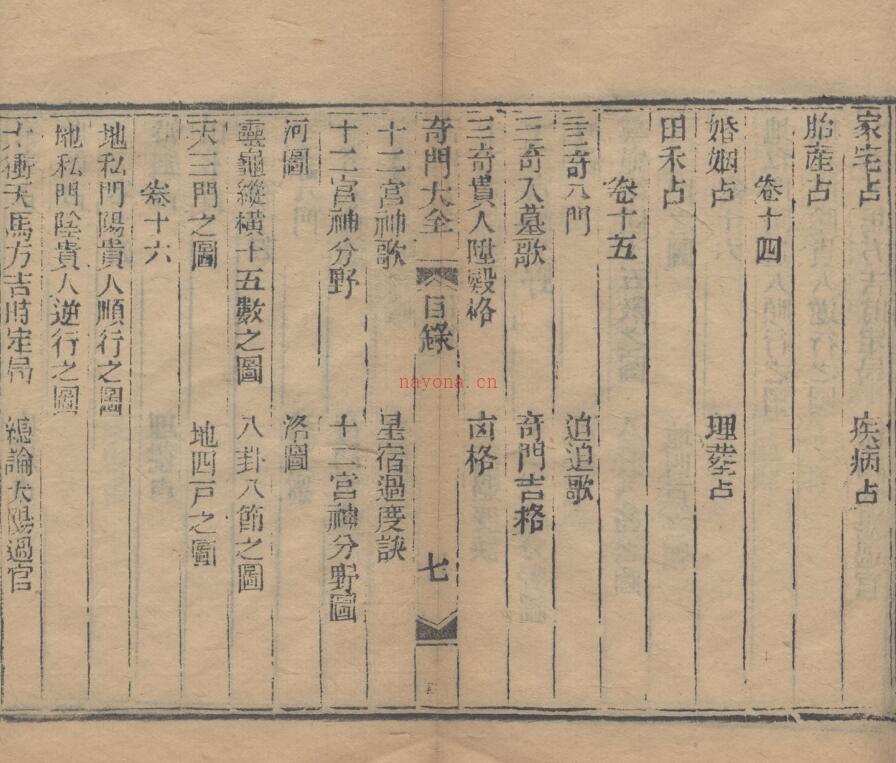 家宅占　疾病占
胎產占
卷十四
婚姻占　理塟占
田禾占
卷十五
三奇八門　迫迫歌
三奇入墓歌　奇門吉格
三奇貴人陞殿格　凶格
奇門大全　目錄　七
十二宮神歌　星宿過度訣
十二宮神分野　十二宮神分野圖
河圖　洛圖
靈龜縱橫十五數之圖　八卦八節之圖
天三門之圖　地四戸之圖
卷十六
地私門陽貴人順行之圖
地私門陰貴人逆行之圖
太衝天馬方吉時定局　總論太陽過宮
nayona.cn